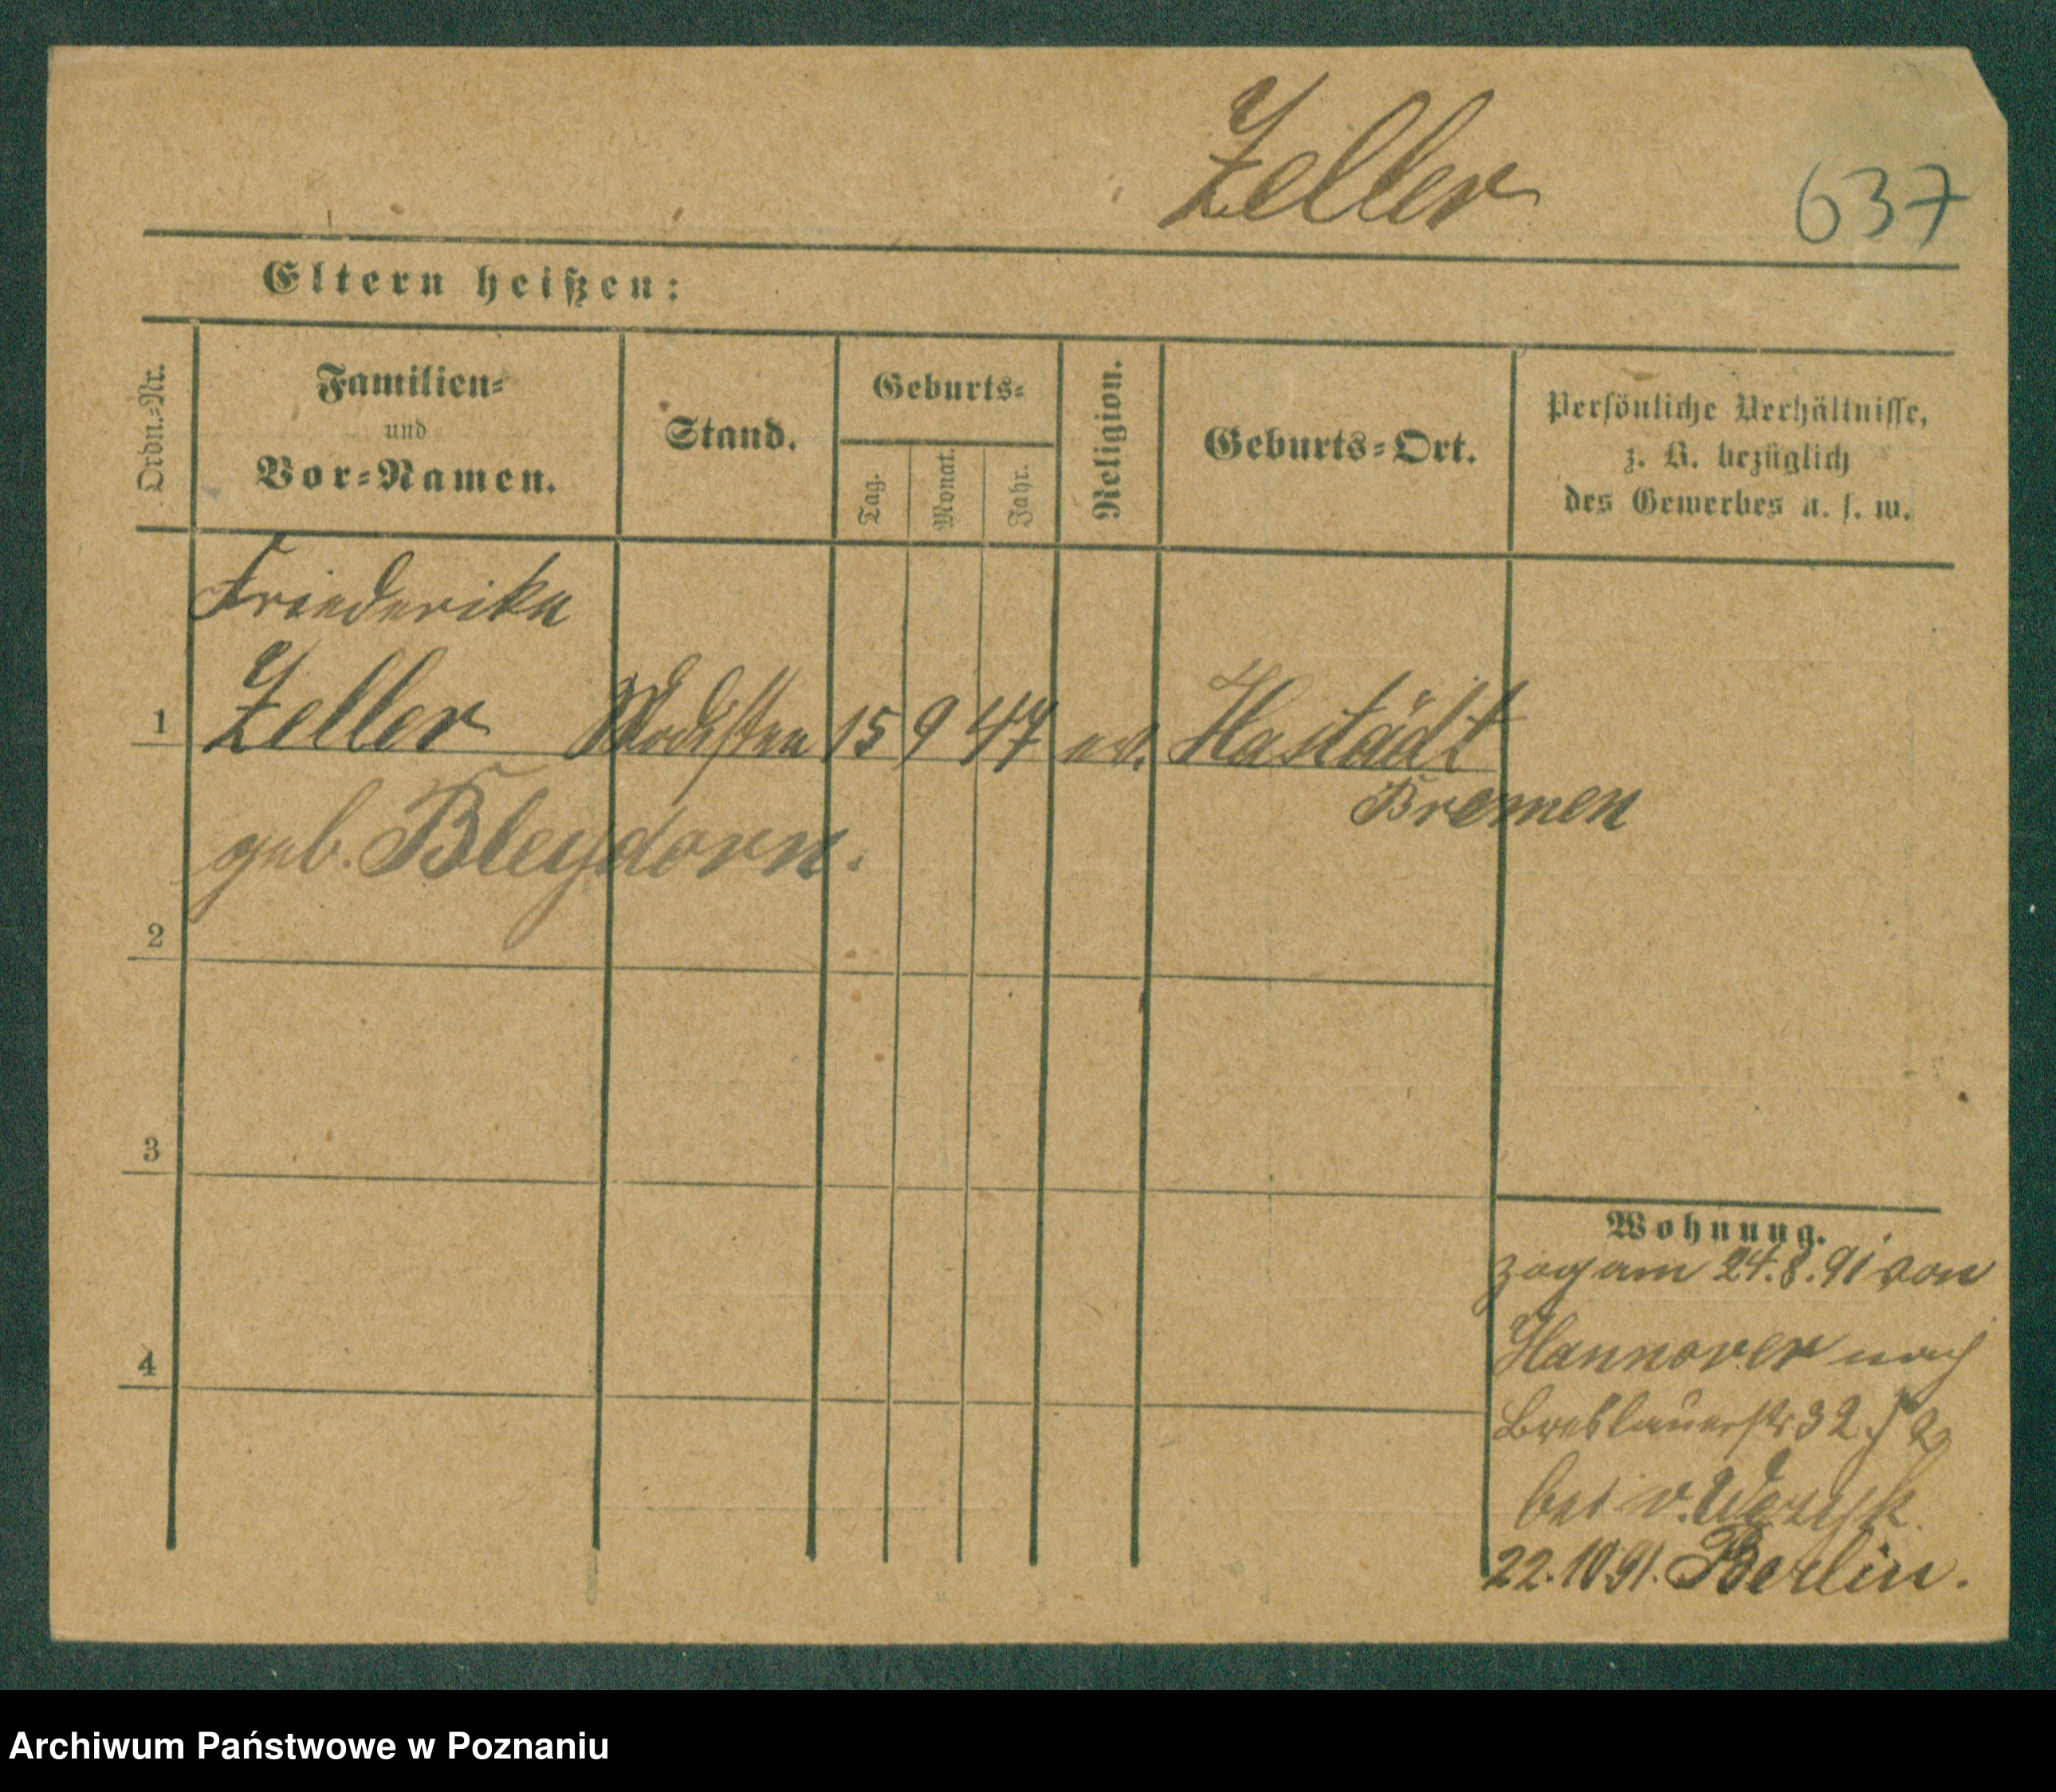 Zeller
637
Eltern heißen:
Ordn.-Nr.
Familien-
und
Vor-Namen.
Stand.
Geburts-
Tag.
Monat.
Jahr.
Religion.
Geburts-Ort.
Persönliche Verhältnisse,
z. B. bezüglich
des Gewerbes u. s. w.
Friederike
1 Zeller Modisten 15 9 47 ev. Hastädt
Bremen
geb. Bleydorn.
2
3
4
Wohnung.
zog am 24.8.91 von
Hannover nach
Breslauerstr 32
bei v.
22.10.91. Berlin.
Archiwum Państwowe w Poznaniu